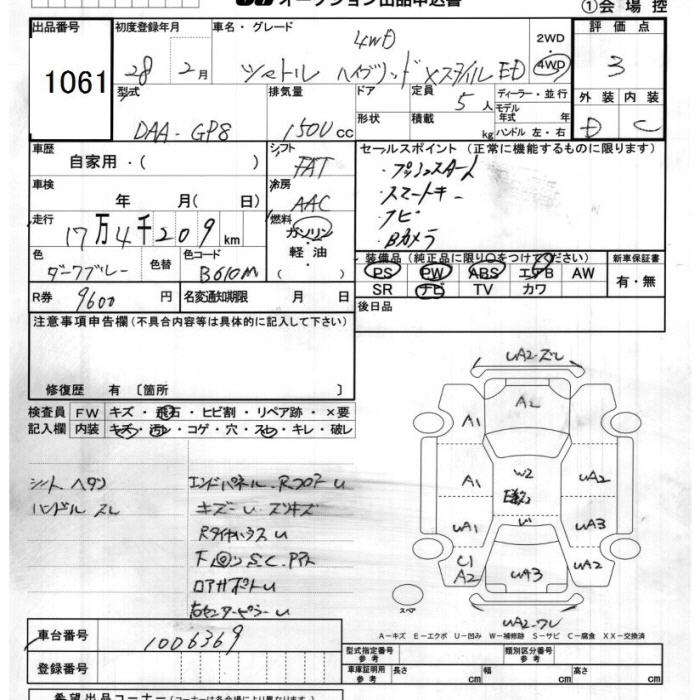 オークション出品申込書
①会場控
出品番号
1061
初度登録年月
28 2月
車名・グレード
4WD
シャトル ハイブリッド Xスタイル ED
2WD
・
4WD
評価点
3
外装 内装
D C
型式
DAA-GP8
排気量
1500cc
ドア
形状
定員
5人
積載
kg
ディーラー・並行
モデル年式 年
ハンドル 左・右
車歴
自家用・( )
シフト
FAT
車検
年 月( 日)
冷房
AAC
走行
17万4千209km
燃料
ガソリン
軽・油
( )
色
ダークブルー
色替
色コード
B610M
R券
9600円
名変通知期限 月 日
セールスポイント(正常に機能するものに限ります)
・プッシュスタート
・スマートキー
・ナビ
・Bカメラ
装備品(純正品に限り○をつけてください)
PS PW ABS エアB AW
SR ナビ TV カワ
新車保証書
有・無
後日品
注意事項申告欄(不具合内容等は具体的に記入して下さい)
修復歴 有〔箇所 〕
検査員記入欄
FW キズ・飛石・ヒビ割・リペア跡・×要
内装 キズ・汚レ・コゲ・穴・スレ・キレ・破レ
シート ヘタリ
ハンドル スレ
エンドパネル、Rフロア U
キズー U、スリキズ
Rタイヤハウス U
下回りS.C.
ロアサポート U
右センターピラー U
UA2-ズレ
A2
A1
A1
W2
UA2
UA1
UA3
C1
A2
UA3
UA2
UA2-ワレ
スペア
A-キズ E-エクボ U-凹み W-補修跡 S-サビ C-腐食 XX-交換済
車台番号
1006369
登録番号
型式指定番号
参考
類別区分番号
参考
車庫証明用
参考
長さ cm 幅 cm 高さ cm
希望出品コーナー(コーナーは各会場により異なります)